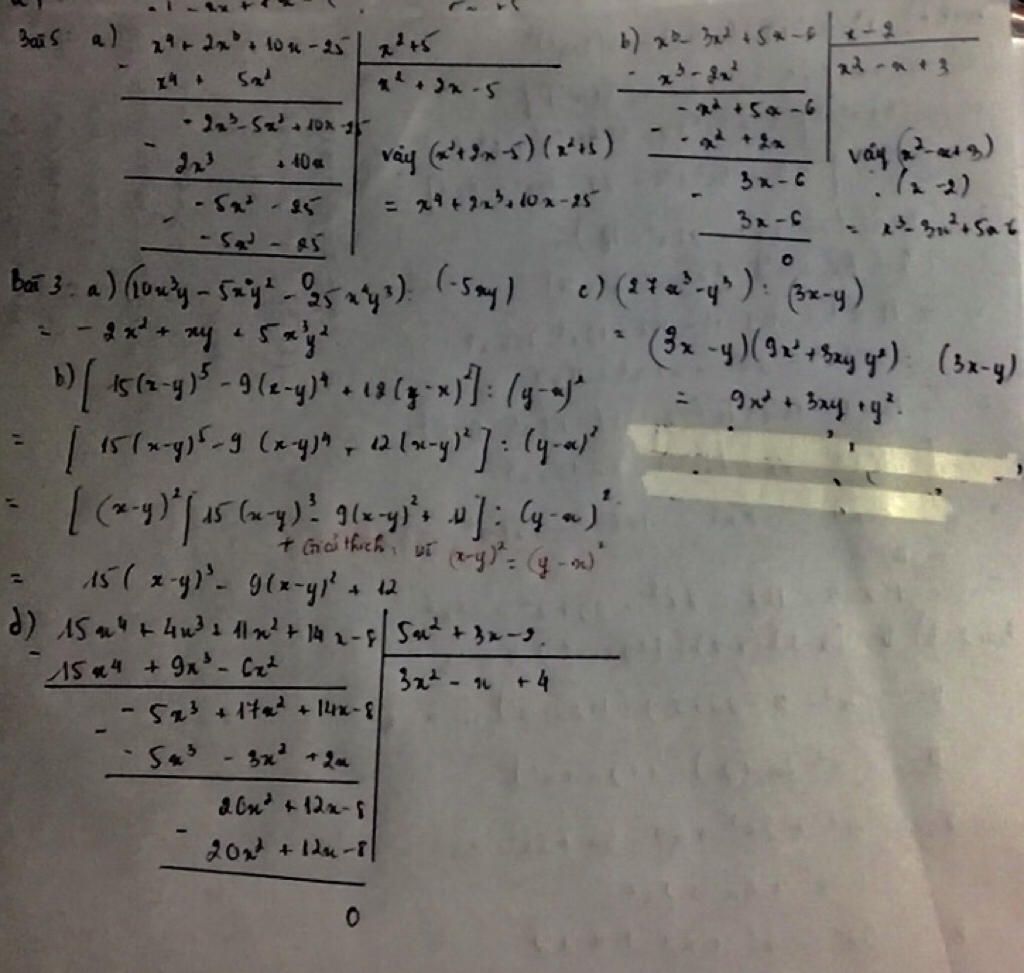 Bài 5: a) x⁴ + 2x³ + 10x - 25 | x² + 5
- x⁴ + 5x² | x² + 2x - 5
- 2x³ - 5x² + 10x - 25
- 2x³ + 10x
- 5x² - 25
- - 5x² - 25
0
vậy (x² + 2x - 5) (x² + 5)
= x⁴ + 2x³ + 10x - 25
b) x³ - 3x² + 5x - 6 | x - 2
- x³ - 2x² | x² - x + 3
- x² + 5x - 6
- - x² + 2x
3x - 6
- 3x - 6
0
vậy (x² - x + 3)
. (x - 2)
= x³ - 3x² + 5x - 6
Bài 3: a) (10x³y - 5x²y² - 25x⁴y³) : (-5xy)
= - 2x² + xy + 5x³y²
b) [ 15(x-y)⁵ - 9(x-y)⁴ + 12(y-x)² ] : (y-x)²
= [ 15 (x-y)⁵ - 9 (x-y)⁴ + 12(x-y)² ] : (y-x)²
= [ (x-y)² [ 15 (x-y)³ - 9(x-y)² + 12 ] : (y-x)²
+ Giải thích: vì (x-y)² = (y-x)²
= 15( x-y)³ - 9(x-y)² + 12
c) (27x³ - y³) : (3x-y)
= (3x - y)(9x² + 3xy y²) : (3x-y)
= 9x² + 3xy + y².
d) 15x⁴ + 4x³ + 11x² + 14x - 8 | 5x² + 3x - 2.
- 15x⁴ + 9x³ - 6x² | 3x² - x + 4
- 5x³ + 17x² + 14x - 8
- - 5x³ - 3x² + 2x
20x² + 12x - 8
- 20x² + 12x - 8
0